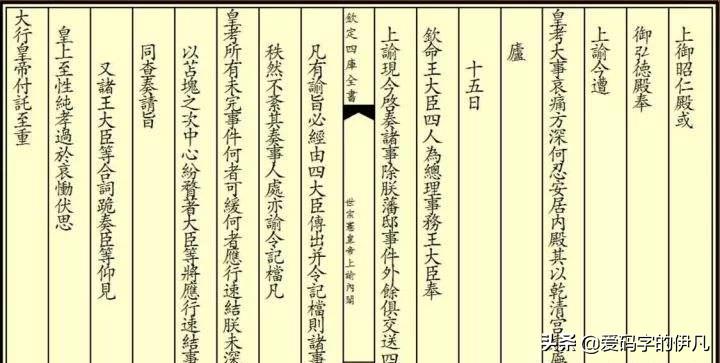 上御昭仁殿或
御弘德殿奉
上諭今遭
皇考大事哀痛方深何忍安居内殿其以乾清宮
廬
十五日
欽命王大臣四人為總理事務王大臣奉
上諭現今啓奏諸事除朕藩邸事件外餘俱交送四
欽定四庫全書
世宗憲皇帝上諭內閣
凡有諭旨必經由四大臣傳出并令記檔則諸事
秩然不紊其奏事人處亦諭令記檔凡
皇考所有未完事件何者可緩何者應行速結朕未深
以苫塊之次中心紛瞀著大臣等將應行速結事
同查奏請旨
又諸王大臣等合詞跪奏臣等仰見
皇上至性純孝過於哀慟伏思
大行皇帝付託至重
头条 @爱码字的伊凡